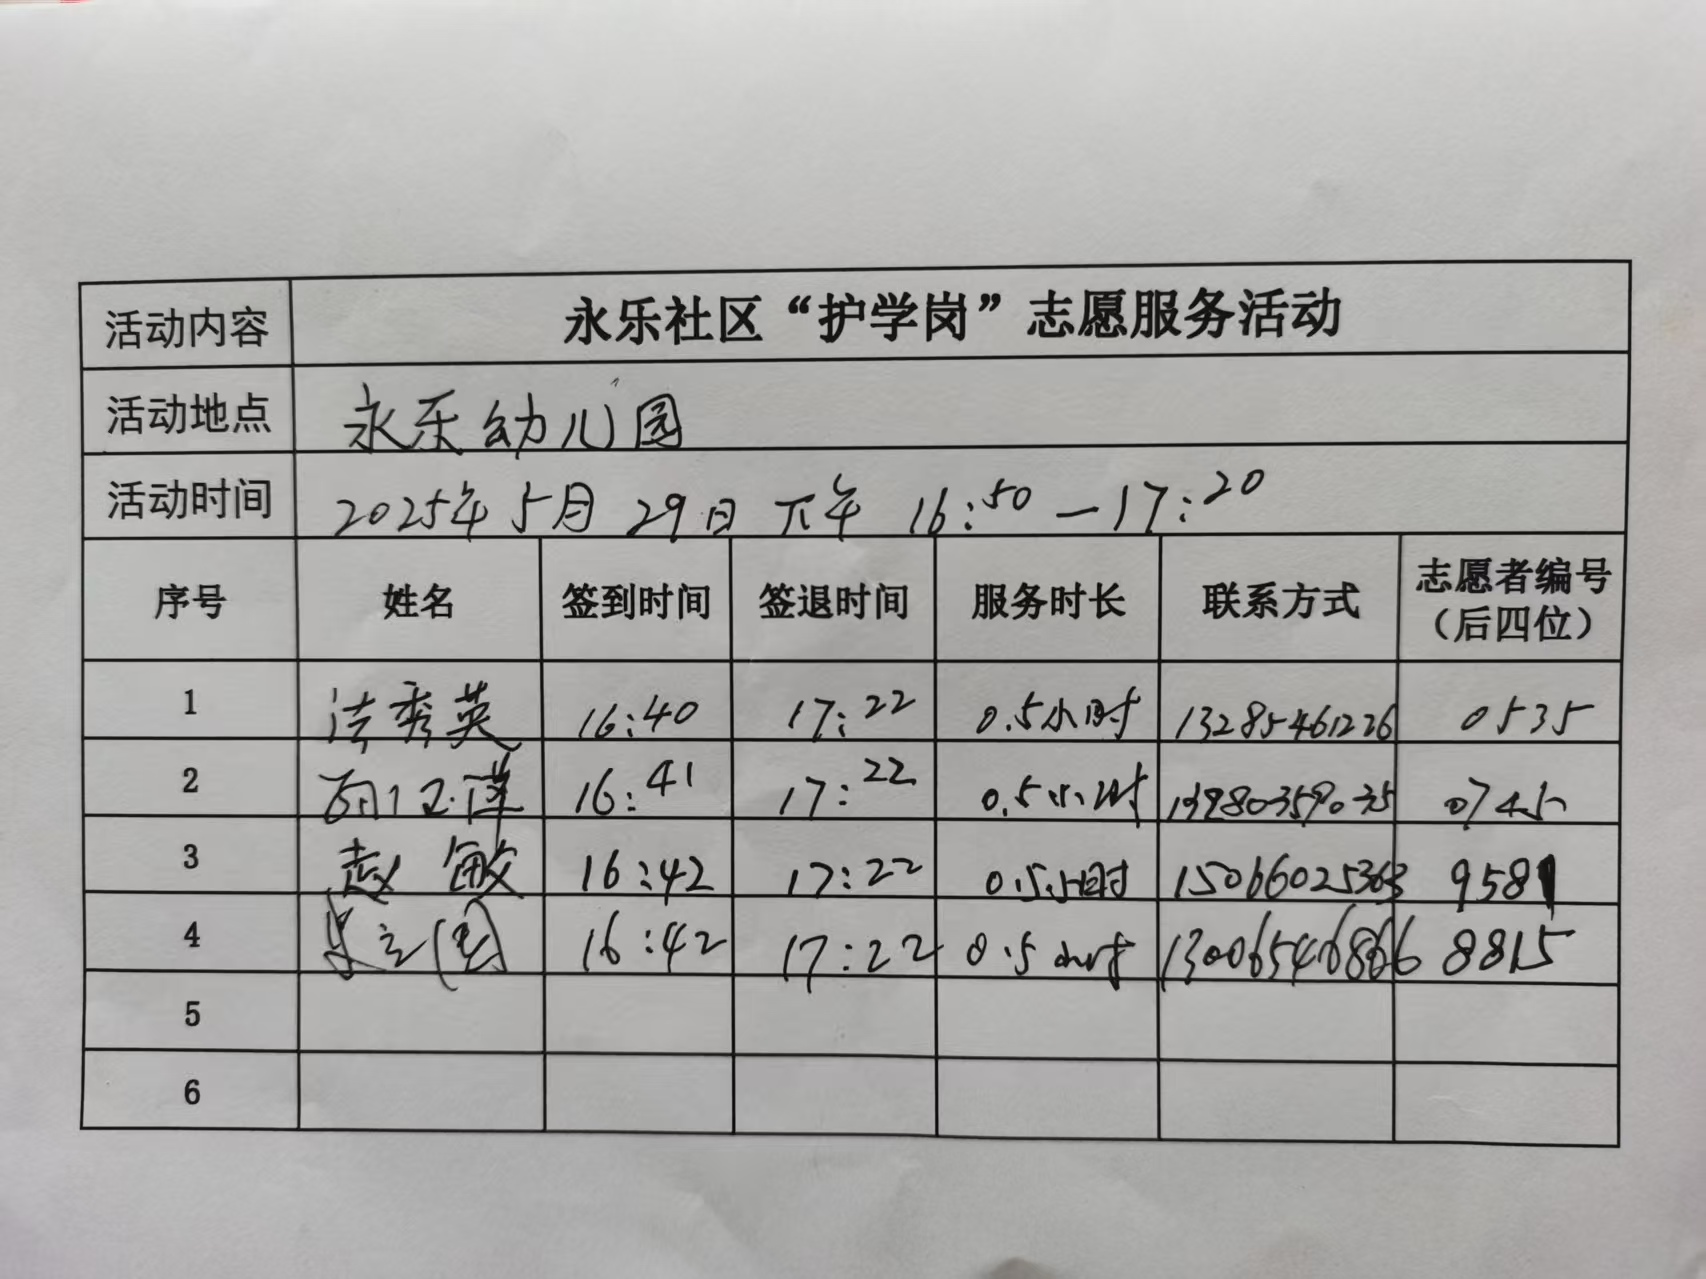 活动内容 永乐社区“护学岗”志愿服务活动
活动地点 永乐幼儿园
活动时间 2025年5月29日 下午 16:50—17:20
序号 姓名 签到时间 签退时间 服务时长 联系方式 志愿者编号
（后四位）
1 秀英 16:40 17:22 0.5小时 13285461226 0535
2 16:41 17:22 0.5小时 0745
3 赵敏 16:42 17:22 0.5小时 15066025363 9581
4 16:42 17:22 0.5小时 13006546866 8815
5
6